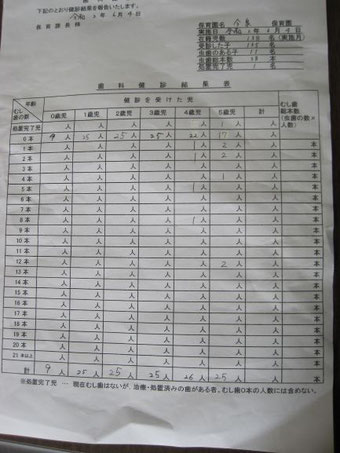 下記のとおり健診結果を報告いたします。
保育課長様
保育園名 保育園
実施日 令和
在籍児数 (実施月)
受診した子
虫歯のある子
虫歯総本数
処置完了児
歯科健診結果表
年齢 健診を受けた児 むし歯
むし歯の数 0歳児 1歳児 2歳児 3歳児 4歳児 5歳児 計 総本数(虫歯の数×人数)
処置完了児 人 人 人 人 人 人 人
0本 9人 25人 25人 25人 22人 17人 人
1本 人 人 人 人 1人 2人 人 本
2本 人 人 人 人 1人 2人 人 本
3本 人 人 人 人 人 人 人 本
4本 人 人 人 人 人 1人 人 本
5本 人 人 人 人 1人 人 人 本
6本 人 人 人 人 人 人 人 本
7本 人 人 人 人 人 人 人 本
8本 人 人 人 人 1人 人 人 本
9本 人 人 人 人 人 人 人 本
10本 人 人 人 人 人 人 人 本
11本 人 人 人 人 人 人 人 本
12本 人 人 人 人 人 2人 人 本
13本 人 人 人 人 人 人 人 本
14本 人 人 人 人 人 人 人 本
15本 人 人 人 人 人 人 人 本
16本 人 人 人 人 人 人 人 本
17本 人 人 人 人 人 人 人 本
18本 人 人 人 人 人 人 人 本
19本 人 人 人 人 人 人 人 本
20本 人 人 人 人 人 人 人 本
21本以上 人 人 人 人 人 人 人 本
計 9人 25人 25人 25人 26人 25人 人 本
※処置完了児 ― 現在むし歯はないが、治療・処置済みの歯がある者。むし歯0本の人数には含めない。